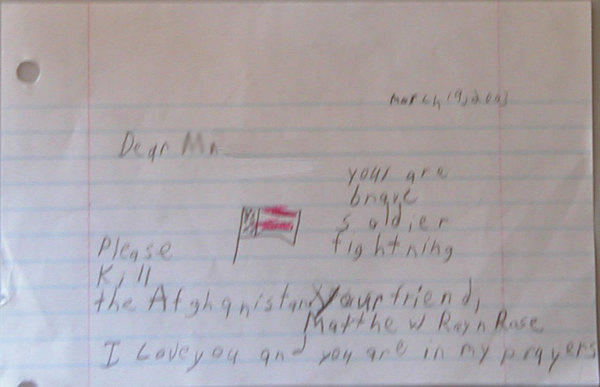 march 19, 2003
Dear Mr.
your are
brave
soldier
fightning
Please
Kill
the Afghanistan
Your friend,
Matthew Rayn Rose
I Love you and you are in my prayers